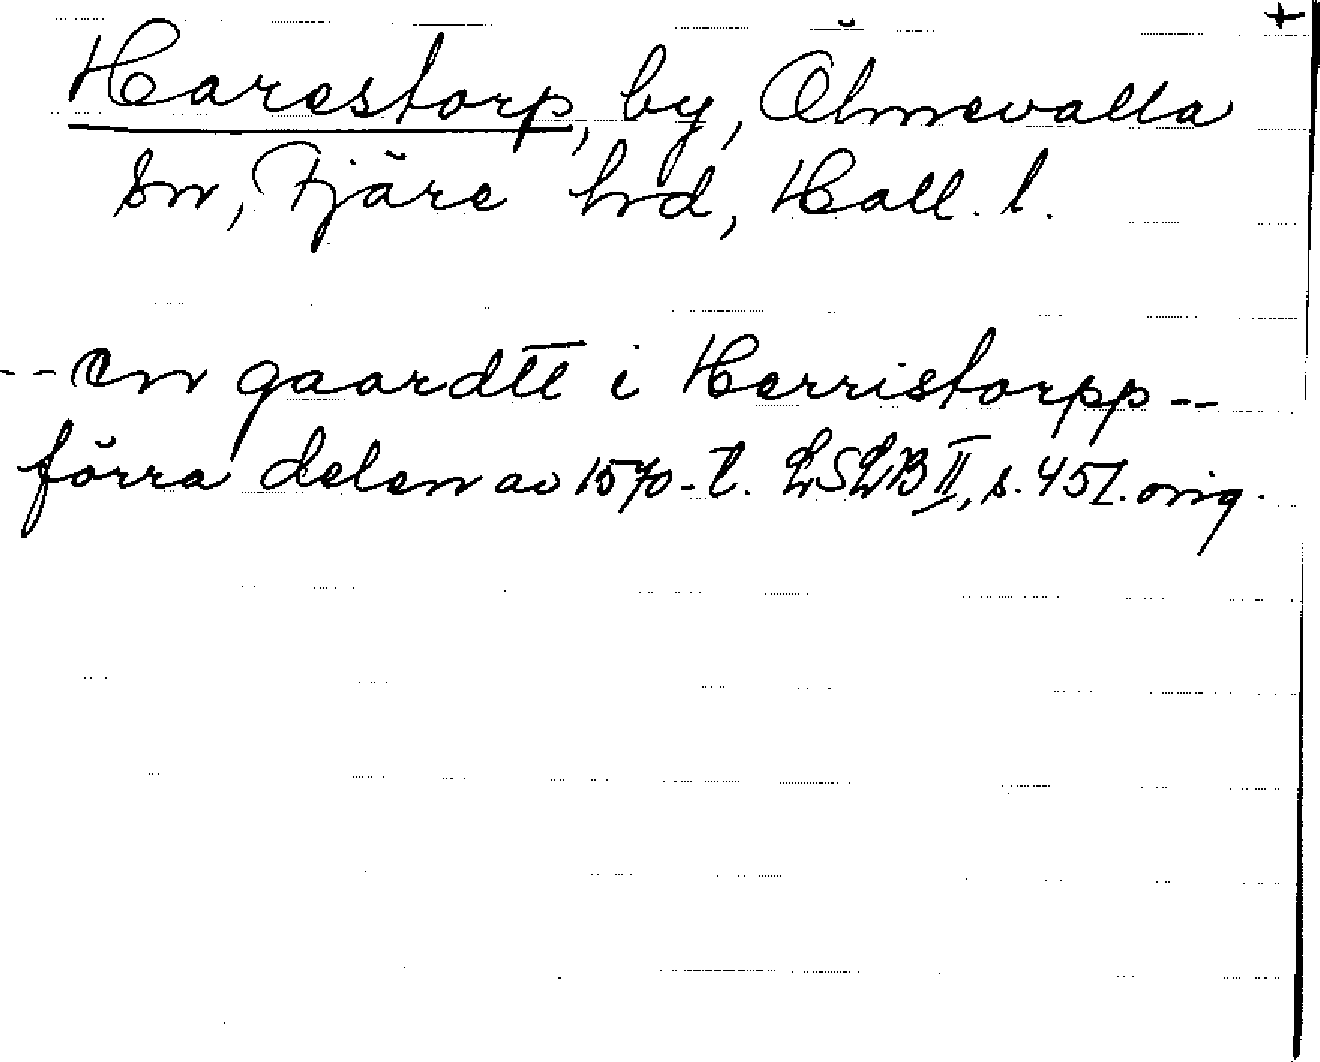 Harestorp, by, Ölmevalla
sn, Fjäre hd, Hall. l.
-- en gaardtt i Herristorpp --
förra delen av 1570-t. LSLB II, s. 451. orig.